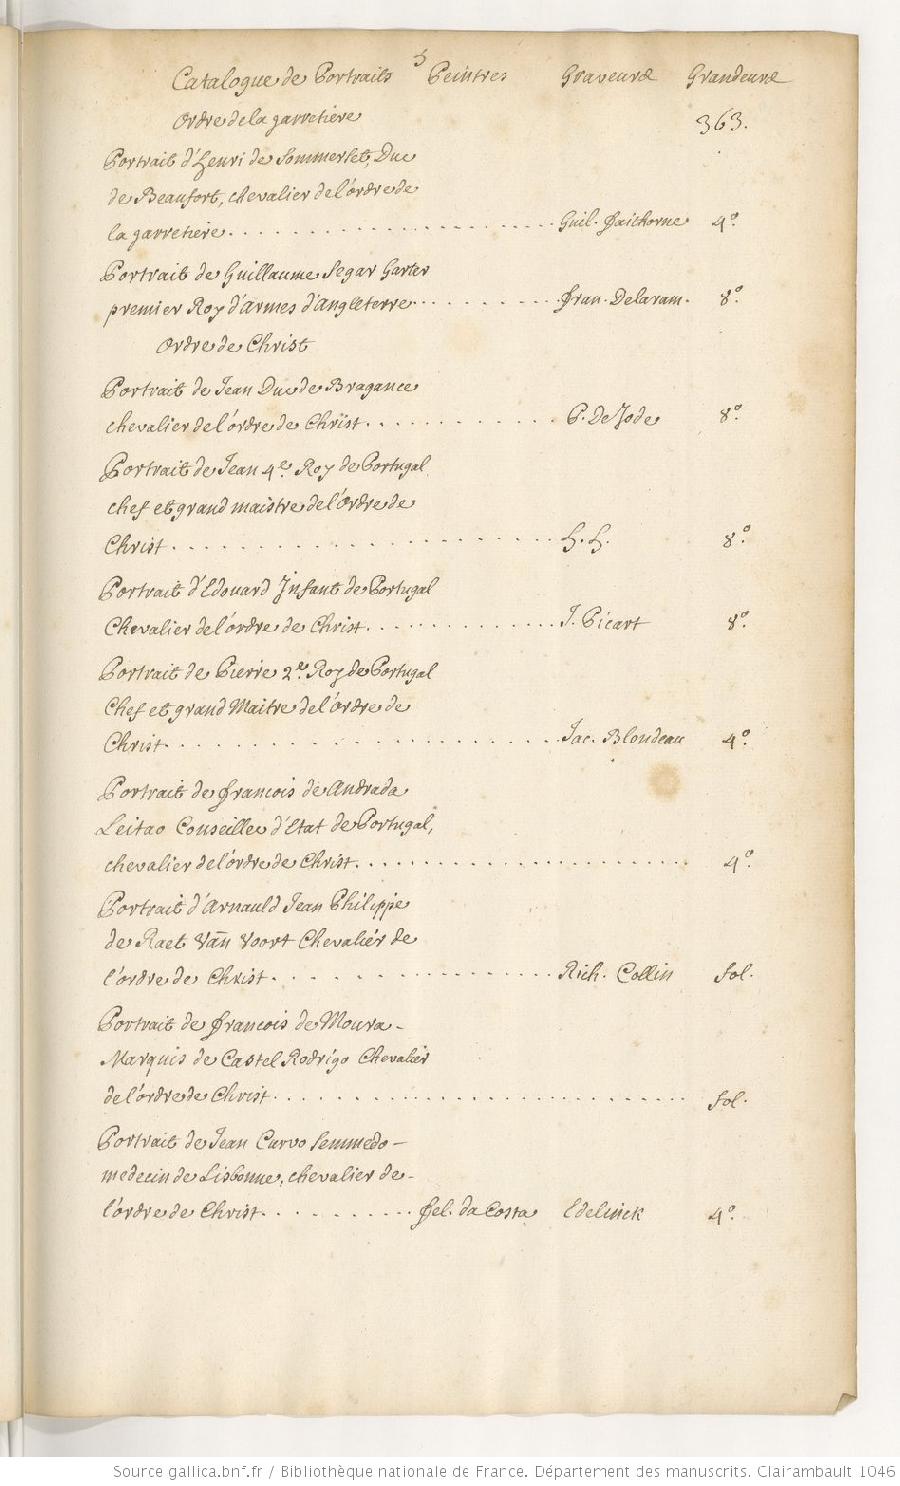 5
Catalogue de Portraits Peintres Graveurs Grandeurs
Ordre de la garretiere 363.
Portrait d'henri de Sommerset, Duc
de Beaufort, chevalier de l'ordre de
la garretiere. . . . . . . . . . . . . . . . . Guil. faithorne 4º.
Portrait de Guillaume Segar Garter
premier Roy d'armes d'angleterre. . . . . . . . . . fran. Delaram. 8º.
Ordre de Christ
Portrait de Jean Duc de Bragance
chevalier de l'ordre de Christ. . . . . . . . . . . P. De Jode 8º.
Portrait de Jean 4e. Roy de Portugal
chef et grand maistre de l'Ordre de
Christ. . . . . . . . . . . . . . . . . . . . h. h. 8º.
Portrait d'Edouard Infant de Portugal
Chevalier de l'ordre de Christ. . . . . . . . . . . J. Picart 8º.
Portrait de Pierre 2e. Roy de Portugal
Chef et grand Maitre de l'ordre de
Christ. . . . . . . . . . . . . . . . . . . . Jac. Blondeau 4º.
Portrait de francois de Andrada
Leitao Conseiller d'Etat de Portugal,
chevalier de l'ordre de Christ. . . . . . . . . . . . . . . . . . . . 4º.
Portrait d'Arnauld Jean Philippe
de Raet Van Voort Chevalier de
l'ordre de Christ. . . . . . . . . . . . . . . Rich. Collin fol.
Portrait de francois de Moura-
Marquis de Castel Rodrigo Chevalier
de l'ordre de Christ. . . . . . . . . . . . . . . . . . . . . . . . fol.
Portrait de Jean Curvo Semmedo-
medecin de Lisbonne, chevalier de-
l'ordre de Christ. . . . . . . . . . fel. da Costa Edelinck 4º.
Source gallica.bnf.fr / Bibliothèque nationale de France. Département des manuscrits. Clairambault 1046